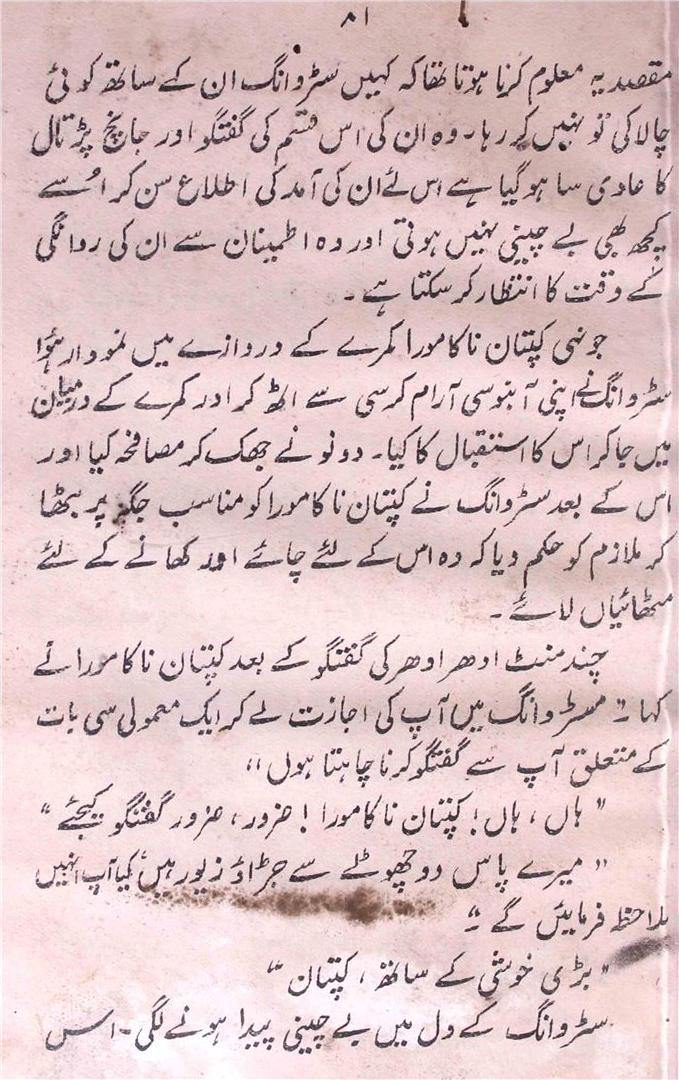 ۸۱
مقصد یہ معلوم کرنا ہوتا تھا کہ کہیں سٹروانگ ان کے ساتھ کوئی
چالاکی تو نہیں کر رہا۔ وہ ان کی اس قسم کی گفتگو اور جانچ پڑتال
کا عادی سا ہو گیا ہے اس لئے ان کی آمد کی اطلاع سن کر اُسے
کچھ بھی بے چینی نہیں ہوتی اور وہ اطمینان سے ان کی روانگی
کے وقت کا انتظار کر سکتا ہے۔
جونہی کپتان ناکامورا کمرے کے دروازے میں نمودار ہُوا
سٹروانگ نے اپنی آبنوسی آرام کرسی سے اٹھ کر اور کمرے کے درمیان
میں جا کر اس کا استقبال کیا۔ دونو نے جھک کر مصافحہ کیا اور
اس کے بعد سٹروانگ نے کپتان ناکامورا کو مناسب جگہ پر بٹھا
کر ملازم کو حکم دیا کہ وہ اس کے لئے چائے اور کھانے کے لئے
مٹھائیاں لائے۔
چند منٹ ادھر ادھر کی گفتگو کے بعد کپتان ناکامورا نے
کہا۔" مسٹر وانگ میں آپ کی اجازت لے کر ایک معمولی سی بات
کے متعلق آپ سے گفتگو کرنا چاہتا ہوں"
"ہاں، ہاں! کپتان ناکامورا! ضرور، ضرور گفتگو کیجئے"
"میرے پاس دو چھوٹے سے جڑاؤ زیور ہیں، کیا آپ انہیں
ملاحظہ فرمائیں گے۔"
"بڑی خوشی کے ساتھ، کپتان"
سٹروانگ کے دل میں بے چینی پیدا ہونے لگی۔ اس